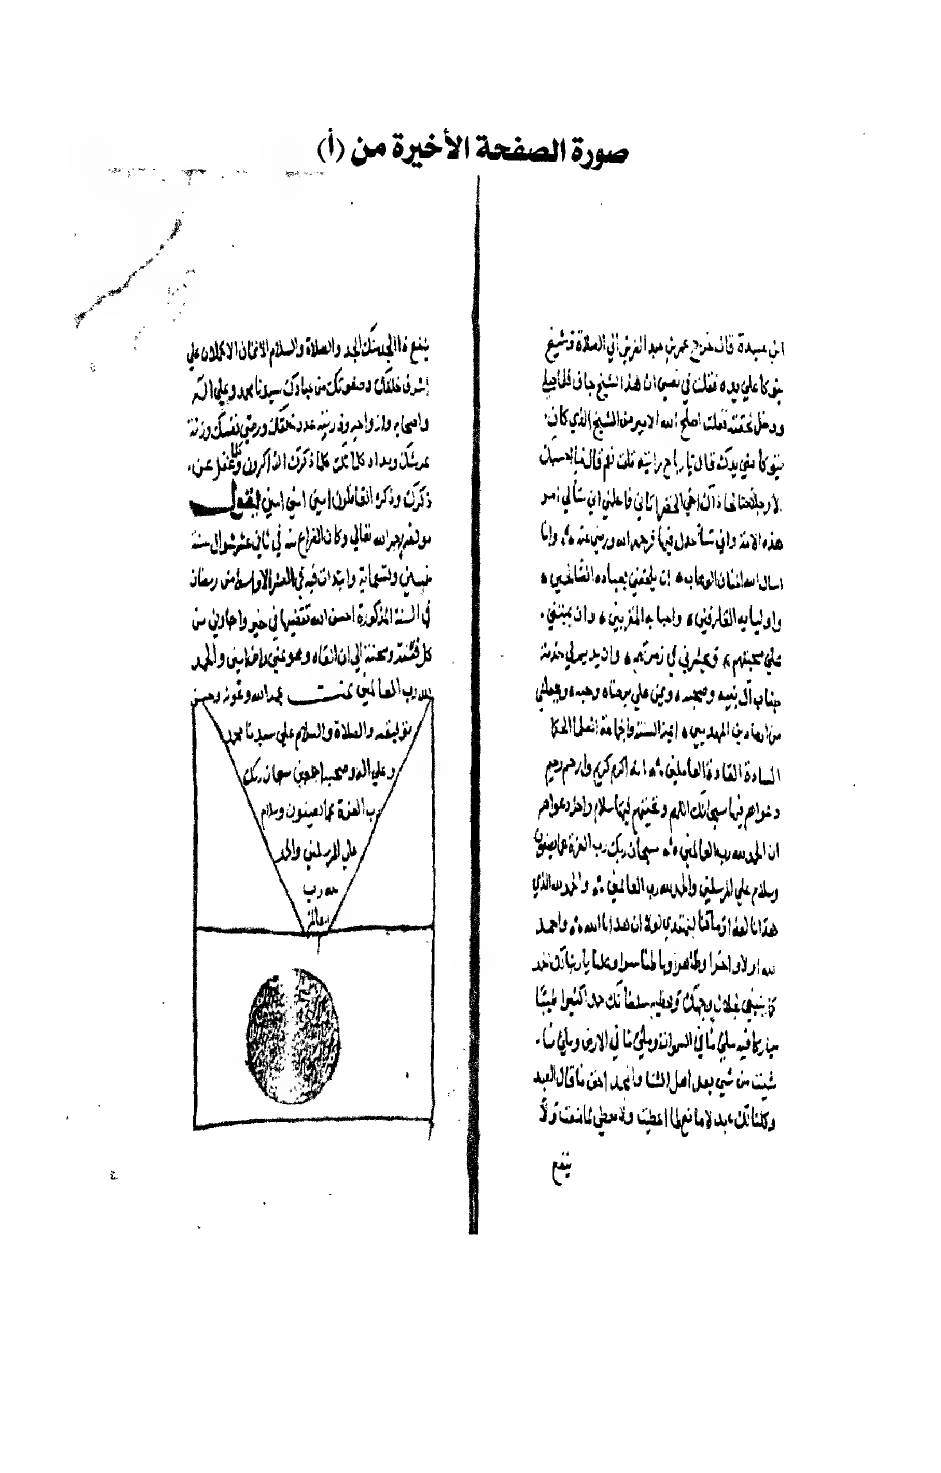 صورة الصفحة الأخيرة من (أ)
ابي عبيدة قال خرج عمر بن عبد العزيز الي الصلاة وشيخ
يتوكا علي يده فقلت في نفسي ان هذا الشيخ جاف فلما صلي
ودخل لحقته فقلت اصلح الله الامير من الشيخ الذي كان
يتوكا علي يدك قال يا رياح رايته قلت نعم قال ما احسبك
الا رجلا صالحا ذاك اخي الخضر اتاني فاعلمني اني سألي امر
هذه الامة واني سأعدل فيها فرحمه الله ورضي عنه وانا
اسال الله المنان الوهاب ان يلحقني بعباده الصالحين
واوليايه العارفين واحبايه المقربين وان يميتني
علي محبتهم ويحشرني في زمرتهم وان يديم لي خدمة
جناب آل نبيه وصحبه ويمن علي برضاه وحبه ويجعلني
من الهادين المهديين ايمة السنة والجماعة العلما الحكما
السادة القادة العاملين انه اكرم كريم وارحم رحيم
دعواهم فيها سبحانك اللهم وتحيتهم فيها سلام واخر دعواهم
ان الحمد لله رب العالمين سبحان ربك رب العزة عما يصفون
وسلام علي المرسلين والحمد لله رب العالمين والحمد لله الذي
هدانا لهذا وما كنا لنهتدي لولا ان هدانا الله والحمد
لله اولا واخرا وظاهرا وباطنا سرا وعلنا يا ربنا لك الحمد
كما ينبغي لجلال وجهك وعظيم سلطانك حمدا كثيرا طيبا
مباركا فيه ملئ السموات وملئ الارض وملئ ما
شيت من شي بعد اهل الثنا والمجد احق ما قال العبد
وكلنا لك عبد لا مانع لما اعطيت ولا معطي لما منعت ولا
ينفع
ينفع ذا الجد منك الجد والصلاة والسلام الاتمان الاكملان علي
اشرف خلقك وصفوتك من عبادك سيدنا محمد وعلي اله
واصحابه وازواجه وذريته عدد خلقك ورضي نفسك وزنة
عرشك ومداد كلماتك كلما ذكرك الذاكرون وكلما غفل عن
ذكرك وذكره الغافلون امين امين امين يقول
مولفه رحمه الله تعالي وكان الفراغ منه في ثاني عشر شوال سنة
خمسين وتسعماية وابتدات فيه في العشر الاواسط من رمضان
في السنة المذكورة احسن الله تقضيها في خير واجارني من
كل فتنة ومحنة الي ان القاه وهو عني راض امين والحمد
لله رب العالمين تمت بحمد الله وعونه وحسن
توفيقه والصلاة والسلام علي سيدنا محمد
وعلي اله وصحبه اجمعين سبحان ربك
رب العزة عما يصفون وسلام
علي المرسلين والحمد
لله رب
العالمين